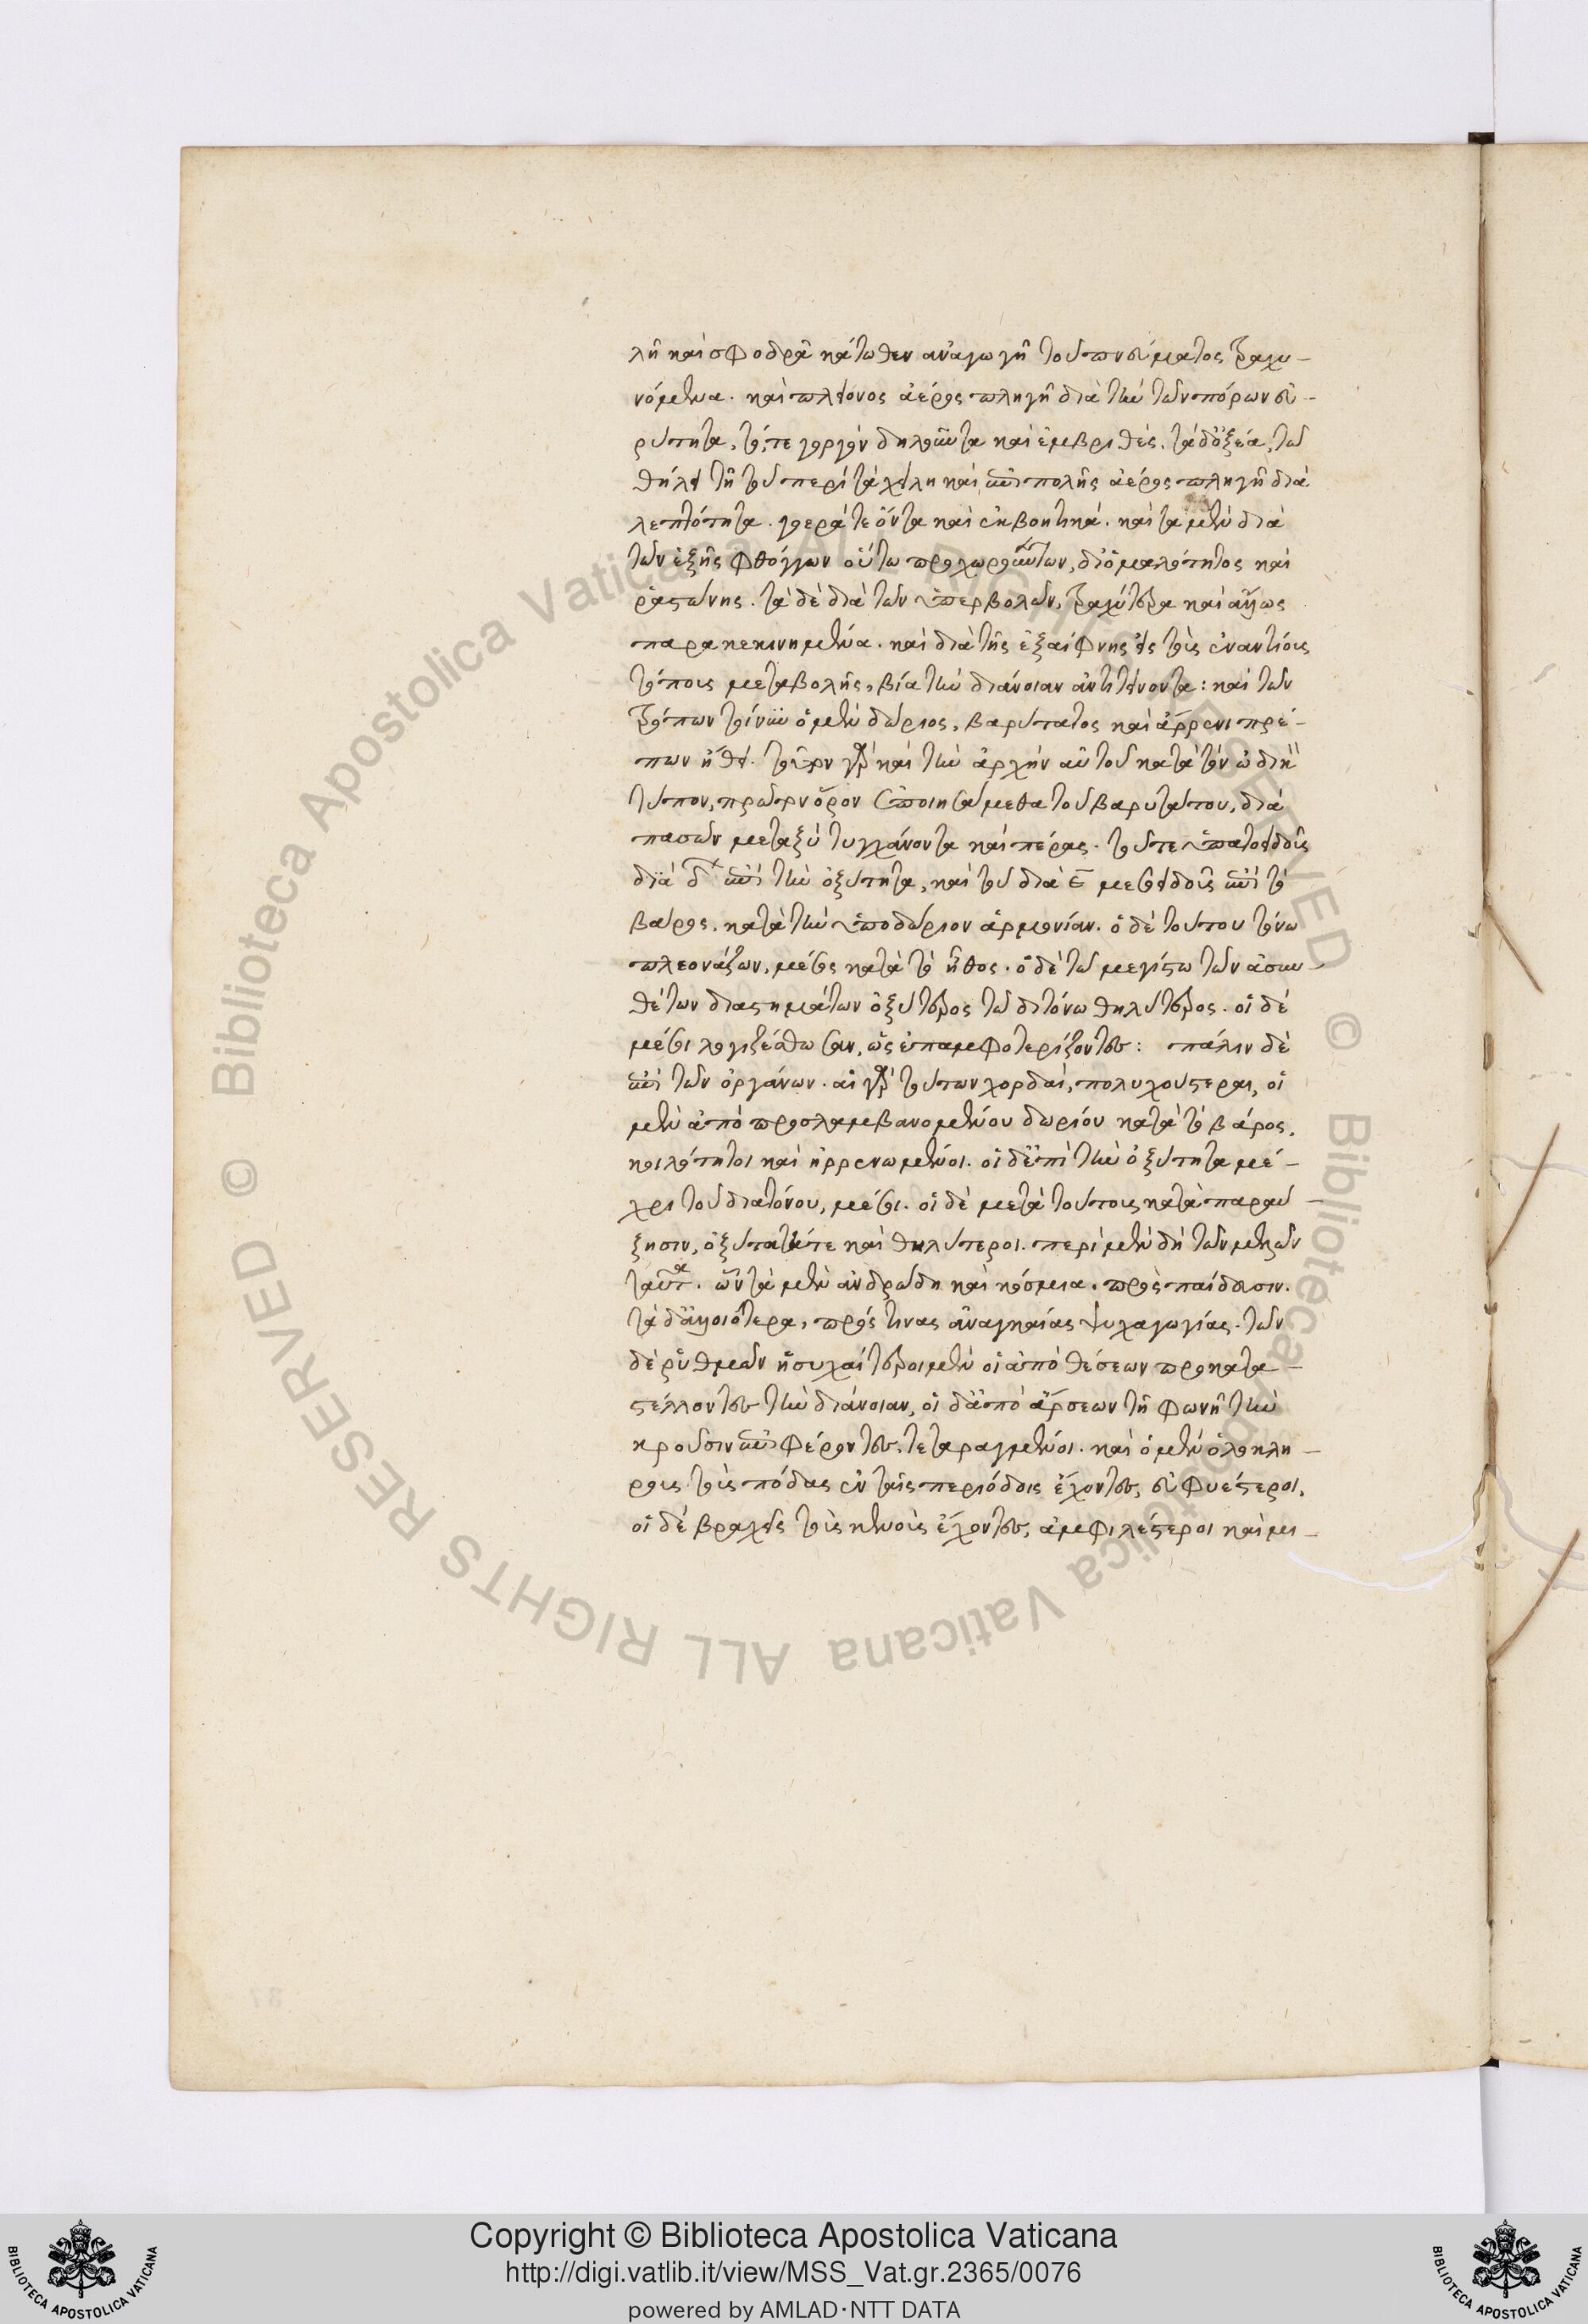 λῆ καὶ σφοδρᾶ κάτωθεν ἀναγωγῆ τοῦ πνεύματος τραχυ-
νόμενα. καὶ πλείονος ἀέρος πληγῆ διὰ τὴν τῶν πόρων εὐ-
ρύτητα, τό,τε γοργὸν δηλοῦντα καὶ ἐμβριθές. τὰ δ᾽ὀξέα, τῶ
θήλει τῆ τοῦ περὶ τὰ χείλη καὶ ἐπιπολῆς ἀέρος πληγῆ διὰ
λεπτότητα. γοερά τε ὄντα καὶ ἐκβοητικά. καὶ τα μὲν διὰ
τῶν ἑξῆς φθόγγων οὕτω προχωρούντων, δι᾽ὁμαλότητος καὶ
ῥᾳστώνης. τὰ δὲ διὰ τῶν ὑπερβολῶν, τραχύτερα καὶ ἄλλως
παρακεκινημένα. καὶ διὰ τῆς ἐξαίφνης εἰς τοὺς ἐναντίους
τόπους μεταβολῆς, βία τὴν διάνοιαν ἀντιτείνοντα: καὶ τῶν
τρόπων τοίνυν ὁ μὲν δώριος, βαρύτατος καὶ ἄρρενι πρέ-
πων ἤθει. καὶ τὴν ἀρχὴν αὐτοῦ κατὰ τὸν ὠδικὸν
τύπον, πρῶτον ὅρον ἐποιησάμεθα τοῦ βαρυτάτου, διὰ
πασῶν μεταξὺ τυγχάνοντα καὶ πέρας. τοῦ τε ὑπατοειδοῦς
διὰ δ ἐπὶ τὴν ὀξύτητα, καὶ τοῦ διὰ ε μεσοειδοῦς ἐπὶ τὸ
βαρος. κατὰ τὴν ὑποδώριον ἁρμονίαν. ὁ δὲ τούτου τόνω
πλεονάζων, μέσος κατὰ τὸ ἦθος. ὁ δὲ τῶ μεγίστω τῶν ἀσυν-
θέτων διαστημάτων ὀξύτερος τῶ διτόνω θηλύτερος. οἱ δὲ
μέσοι λογιζέσθωσαν, ὡς ἐπαμφοτερίζοντες: πάλιν δὲ
ἐπὶ τῶν ὀργάνων. αἱ γὰρ τούτων χορδαὶ, πολυχούστεραι, οἱ
μὲν ἀπὸ προσλαμβανομένου δωρίου κατὰ τὸ βάρος,
κοιλότητοι καὶ ἠρρενωμένοι. οἱ δ᾽ἐπὶ τὴν ὀξύτητα μέ-
χρι τοῦ διατόνου, μέσοι. οἱ δὲ μετὰ τούτους κατὰ παραύ-
ξησιν, ὀξύτατοί τε καὶ θηλύτεροι. περὶ μὲν δὴ τῶν μελῶν
ταῦτα. ὧν τὰ μὲν ἀνδρώδη καὶ κόσμια. πρὸς παίδευσιν.
τὰ δ᾽ἀλλοιότερα, πρός τινας ἀναγκαίας ψυχαγωγίας. τῶν
δὲ ῥυθμῶν ἡσυχαίτεροι μὲν οἱ ἀπὸ θέσεων προκατα-
στέλλοντες τὴν διάνοιαν, οἱ δ᾽ἀπὸ ἄρσεων τῆ φωνῆ τὴν
κροῦσιν ἐπιφέροντες, τεταραγμένοι. καὶ ὁ μὲν ὁλοκλή-
ρους τοὺς πόδας ἐν ταῖς περιόδοις ἔχοντες, εὐφυέστεροι.
οἱ δὲ βραχεῖς τοὺς κενοὺς ἔχοντες, ἀμφιλέστεροι καὶ μι-
Copyright © Biblioteca Apostolica Vaticana
http://digi.vatlib.it/view/MSS_Vat.gr.2365/0076
powered by AMLAD·NTT DATA